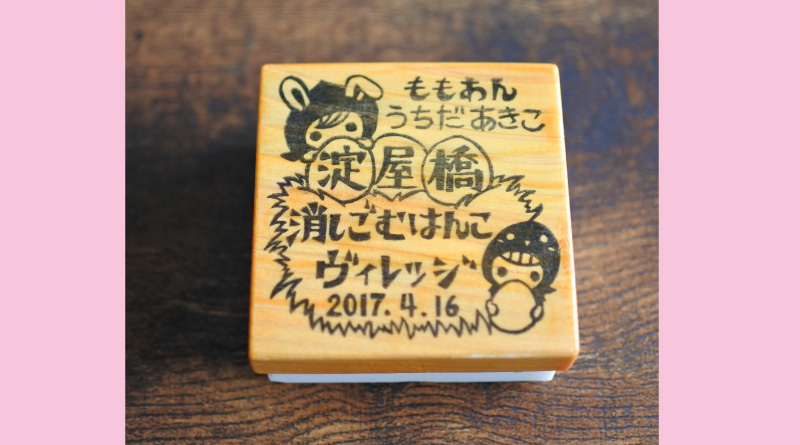 ももあん
うちだあきこ
淀屋橋
消しごむはんこ
ヴィレッジ
2017.4.16